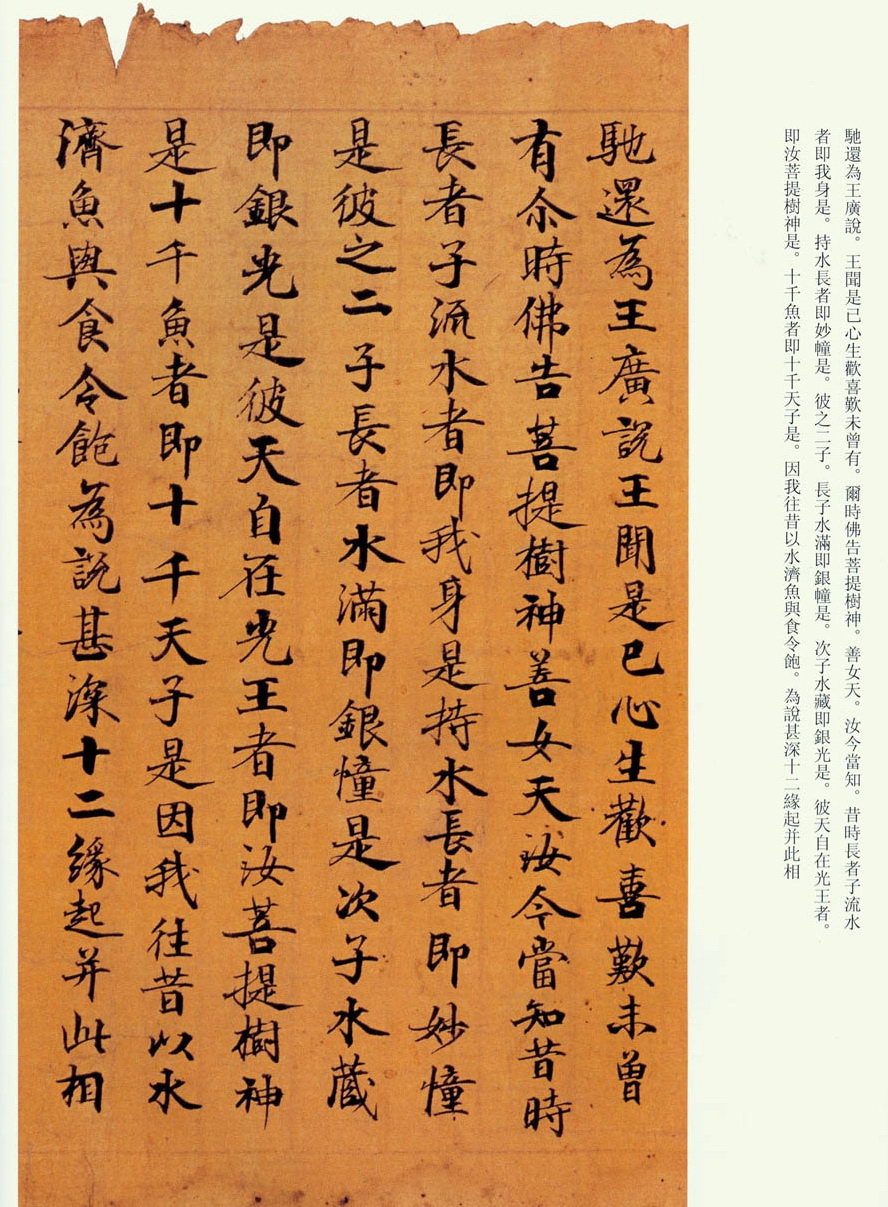 馳還為王廣說。王聞是已心生歡喜歎未曾有。爾時佛告菩提樹神。善女天。汝今當知。昔時長者子流水
者即我身是。持水長者即妙幢是。彼之二子。長子水滿即銀幢是。次子水藏即銀光是。彼天自在光王者。
即汝菩提樹神是。十千魚者即十千天子是。因我往昔以水濟魚與食令飽。為說甚深十二緣起并此相
馳還為王廣說王聞是已心生歡喜歎未曾
有尒時佛告菩提樹神善女天汝今當知昔時
長者子流水者即我身是持水長者即妙幢
是彼之二子長者水滿即銀幢是次子水蔵
即銀光是彼天自在光王者即汝菩提樹神
是十千魚者即十千天子是因我往昔以水
濟魚與食令飽為說甚深十二緣起并此相